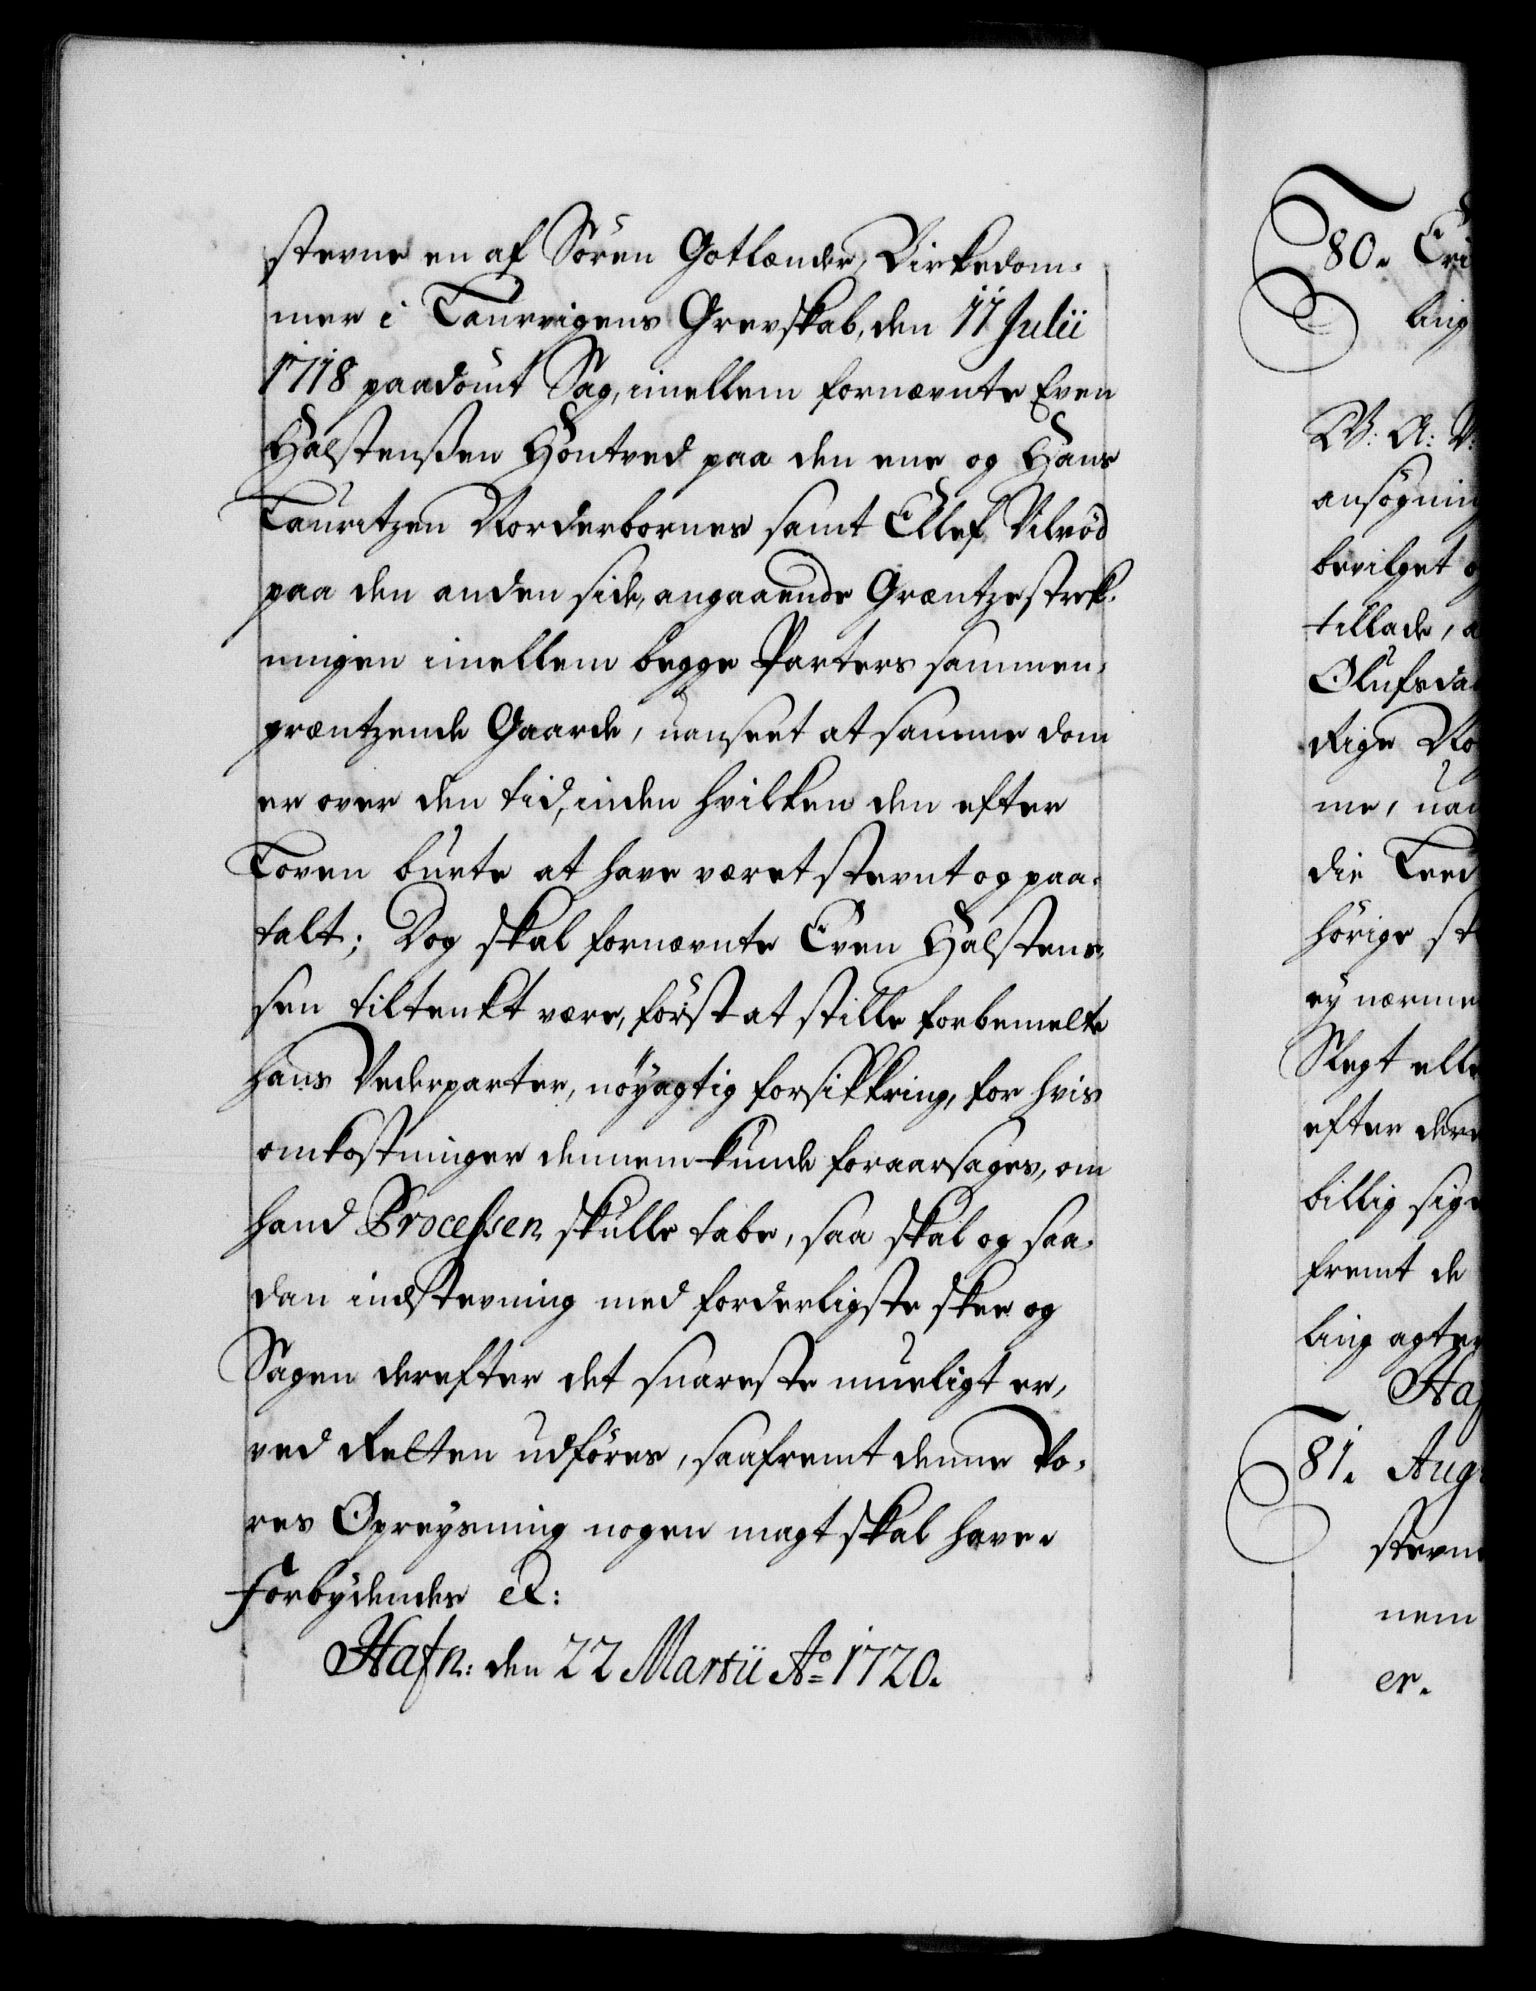 stevne en af Sören Gotlænder, Birkedom-
mer i Laurvigens Grevskab, den 11 Julii
1718 paadömt Sag, imellem fornævnte Even
Halstenßen Höntved paa den ene og Hans
Lauritzen Norderbornes samt Ellef Vilröd
paa den anden side, angaaende Græntzestrek-
ningen imellem begge Parters sammen-
græntzende Gaarde, uanseet at samme dom
er over den tid, inden hvilken den efter
Loven burte at have været stevnt og paa-
talt; Dog skal fornævnte Even Halstens-
sen tiltenkt være, först at stille forbemelte
hans Vederparter, nöyagtig forsikkring, for hvis
omkostninger dennem kunde foraarsages, om
hand Processen skulle tabe, saa skal og saa-
dan indstevning med forderligste skee og
Sagen derefter det snareste mueligt er,
ved Retten udföres, saafremt denne Vo-
res Opreysning nogen magt skal have.
Forbydendes etc:
Hafn: den 22 Martii Ao 1720.
80. Eri
ling
W: A: V:
ansögning
bevilget o
tillade, a
Olufsda
Rige No
me, uan
die Leed
hörige st
ey nærme
Slegt elle
efter der
billig sig
fremt de
ling agter
Haf
81. Aug
stevne
nem
er.